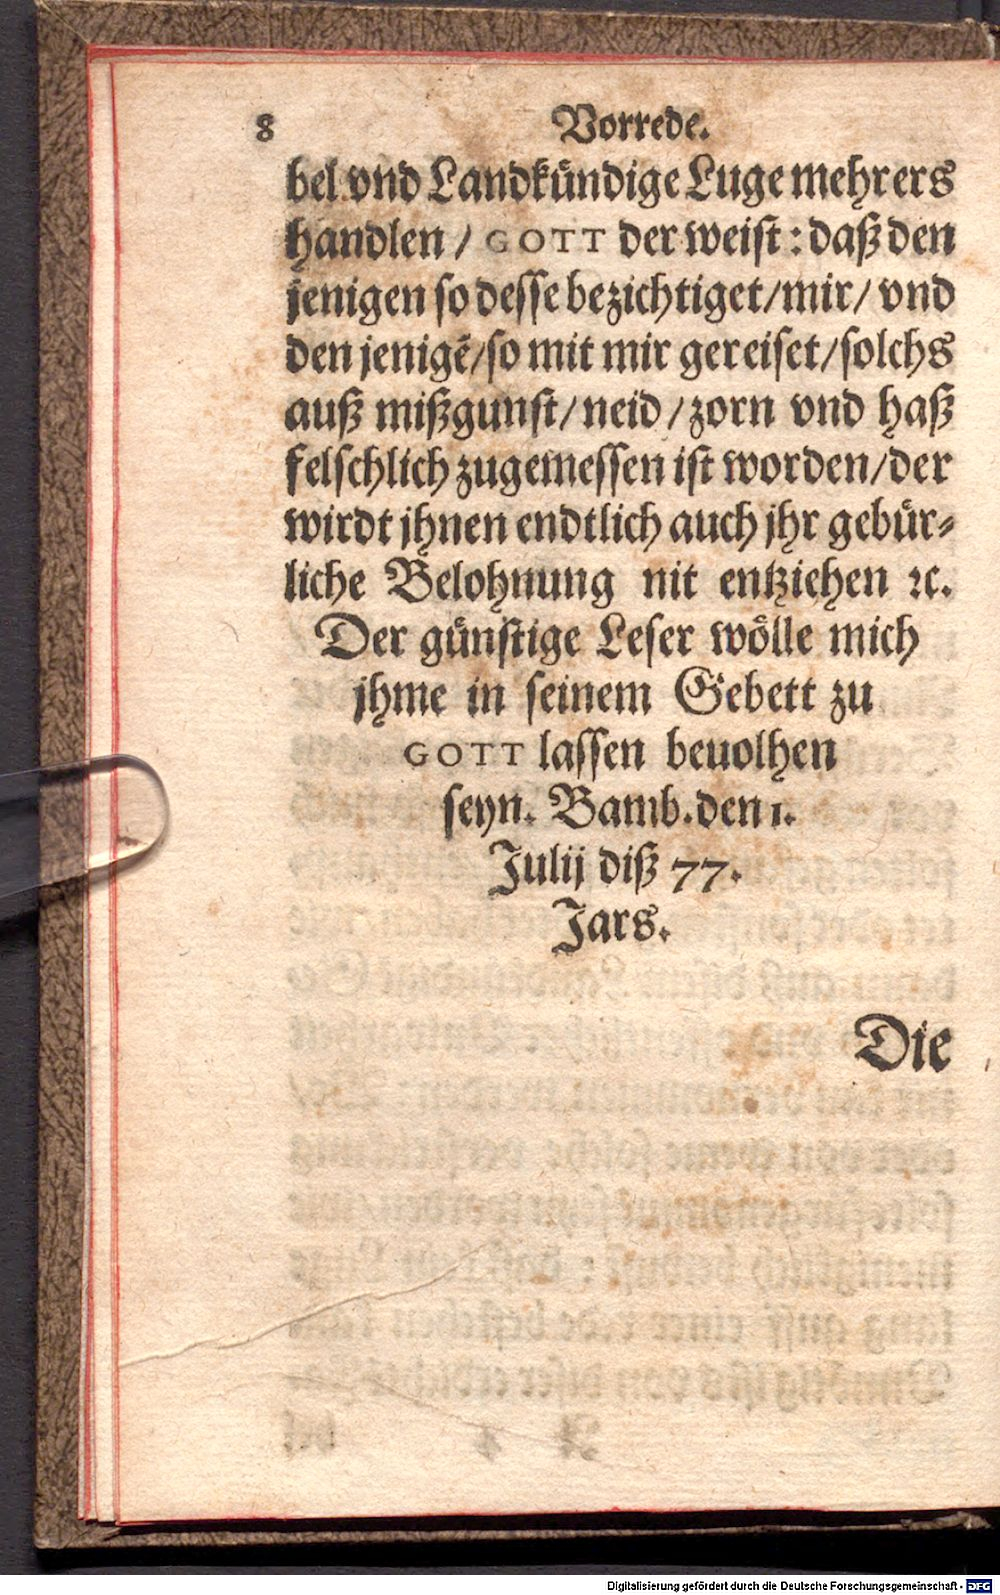 8 Vorrede.
bel vnd Landkündige Luge mehrers
handlen / GOTT der weist : daß den
jenigen so desse bezichtiget/mir/ vnd
den jenigẽ/so mit mir gereiset/solchs
auß mißgunst/neid/zorn vnd haß
felschlich zugemessen ist worden/der
wirdt jhnen endtlich auch jhr gebür⸗
liche Belohnung nit entziehen ꝛc.
Der günstige Leser wölle mich
jhme in seinem Gebett zu
GOTT lassen beuolhen
seyn. Bamb.den 1.
Julij diß 77.
Jars.
Die
Digitalisierung gefördert durch die Deutsche Forschungsgemeinschaft - DFG